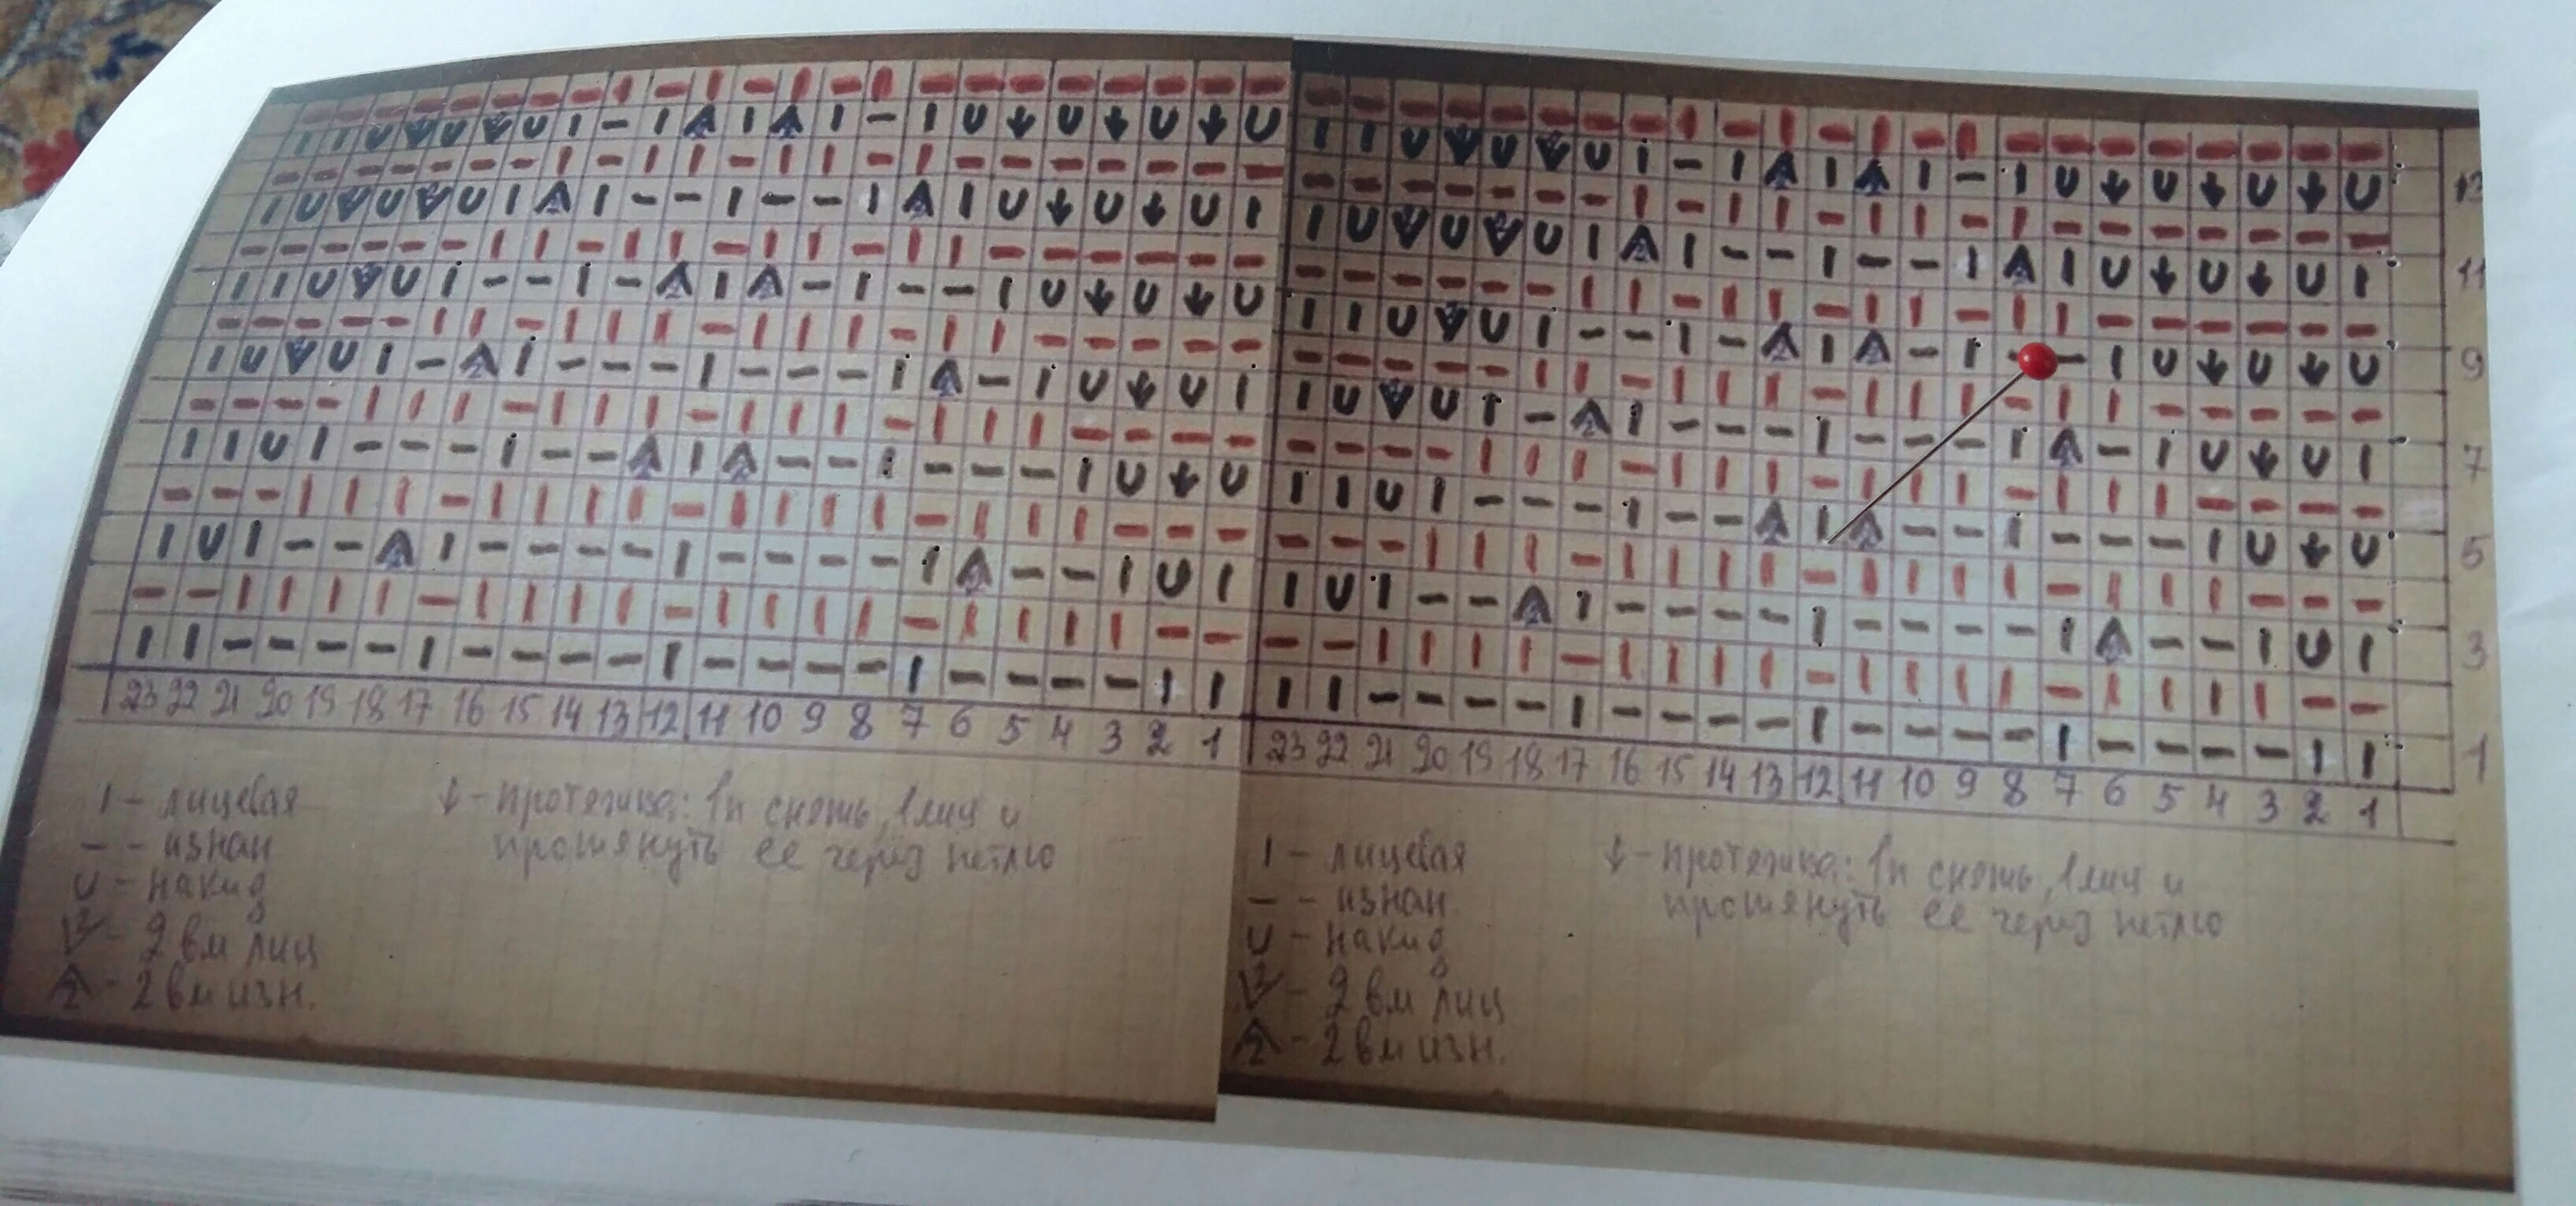 13
11
9
7
5
3
1
23 22 21 20 19 18 17 16 15 14 13 12 11 10 9 8 7 6 5 4 3 2 1
| - лицевая
— - изнан
U - накид
2 - 2 вм лиц
2 - 2 вм изн.
↓ - протяжка: 1п снять, 1лиц и
протянуть ее через петлю
23 22 21 20 19 18 17 16 15 14 13 12 11 10 9 8 7 6 5 4 3 2 1
| - лицевая
— - изнан
U - накид
2 - 2 вм лиц
2 - 2 вм изн.
↓ - протяжка: 1п снять, 1лиц и
протянуть ее через петлю